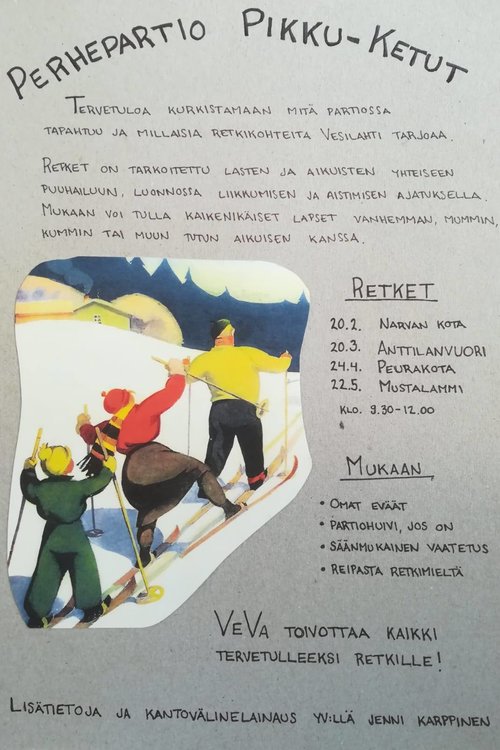 PERHEPARTIO PIKKU-KETUT
TERVETULOA KURKISTAMAAN MITÄ PARTIOSSA
TAPAHTUU JA MILLAISIA RETKIKOHTEITA VESILAHTI TARJOAA.
RETKET ON TARKOITETTU LASTEN JA AIKUISTEN YHTEISEEN
PUUHAILUUN, LUONNOSSA LIIKKUMISEN JA AISTIMISEN AJATUKSELLA.
MUKAAN VOI TULLA KAIKENIKÄISET LAPSET VANHEMMAN, MUMMIN,
KUMMIN TAI MUUN TUTUN AIKUISEN KANSSA.
RETKET
20.2. NARVAN KOTA
20.3. ANTTILANVUORI
24.4. PEURAKOTA
22.5. MUSTALAMMI
KLO. 9.30-12.00
MUKAAN
• OMAT EVÄÄT
• PARTIOHUIVI, JOS ON
• SÄÄNMUKAINEN VAATETUS
• REIPASTA RETKIMIELTÄ
VEVA TOIVOTTAA KAIKKI
TERVETULLEEKSI RETKILLE!
LISÄTIETOJA JA KANTOVÄLINELAINAUS YV:LLÄ JENNI KARPPINEN